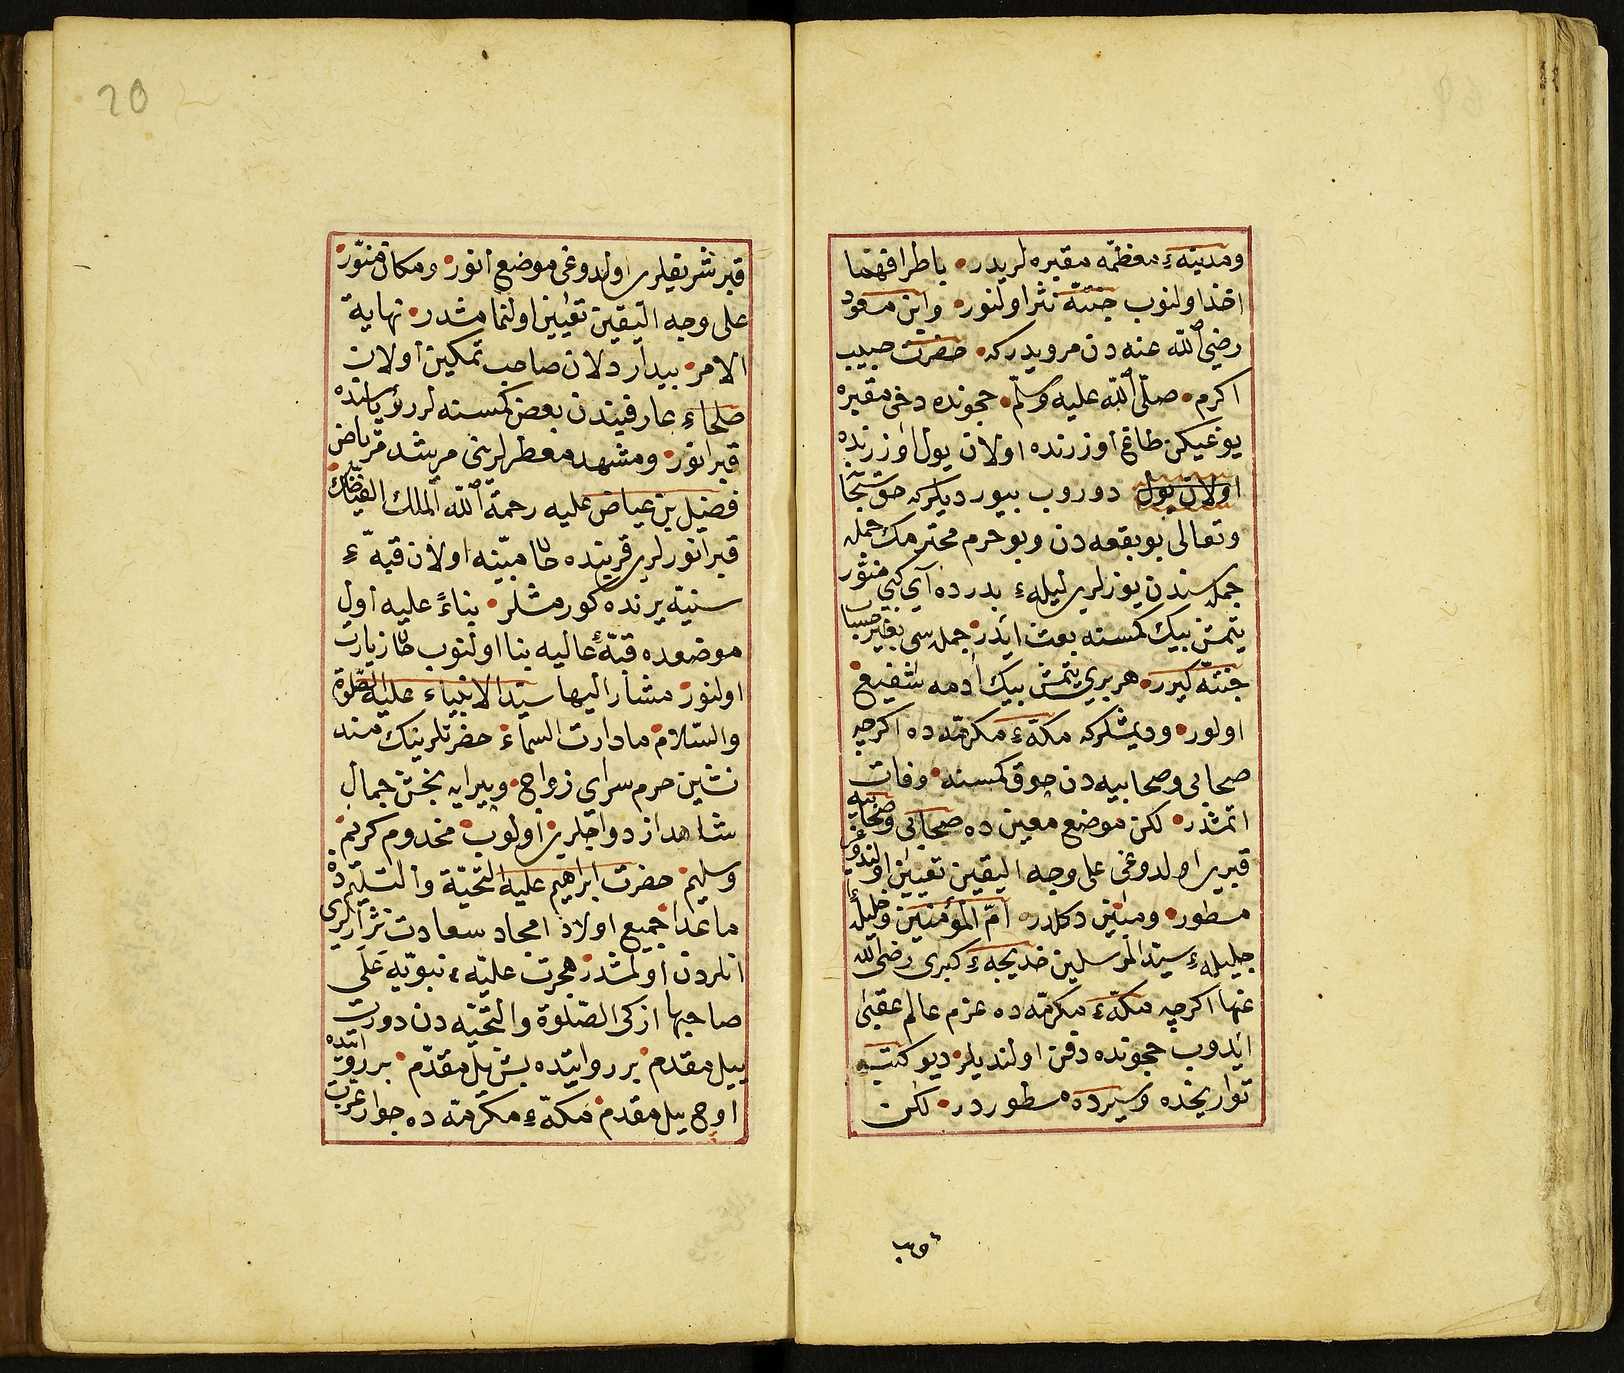 ومدینهٔ معظمه مقبره لریدر باطرافهما
اخذ اولنوب جنته نثر اولنور وابن مسعود
رضی الله عنه دن مرویدر که حضرت حبیب
اکرم صلّی الله علیه وسلّم حجونده دخی مقبره
یوغیکن طاغ اوزرنده اولان یول اوزرنده
اولان یول دوروب بیوردیلر که حق سبحا
وتعالی بو بقعه دن وبو حرم محترمک جمله
جمله سندن یوزلری لیلهٔ بدرده آی کبی منور
یتمش بیک کمسنه بعث ایدر جمله سی بغیر حساب
جنته کیرر هر بری یتمش بیک آدمه شفیع
اولور ودیمشلر که مکهٔ مکرمه ده اکرچه
صحابی وصحابیه دن چوق کمسنه وفات
اتمشدر لکن موضع معین ده صحابی وصحابیه
قبری اولدوغی علی وجه الیقین تعیین اولندوغی
مسطور ومبین دکلدر امّ المؤمنین وحلیلهٔ
جلیلهٔ سید المرسلین خدیجهٔ کبری رضی الله
عنها اکرچه مکهٔ مکرمه ده عزم عالم عقبی
ایدوب حجونده دفن اولندیلر دیو کتب
تواریخده وسیرده مسطوردر لکن
قبر
20
قبر شریفلری اولدوغی موضع انور ومکان منوّر
علی وجه الیقین تعیین اولنمامشدر نهایة
الامر بیدار دلان صاحب تمکین اولان
صلحاء عارفیندن بعض کمسنه لر رؤیاسنده
قبر انور ومشهد معطرلرینی مرشد مرتاض
فضیل بن عیاض علیه رحمة الله الملک الفیاضک
قبر انورلری قربنده حالا مبنیه اولان قبهٔ
سنیه یرنده کورمشلر بناءً علیه اول
موضعده قبهٔ عالیه بنا اولنوب حالا زیارت
اولنور مشار الیها سید الانبیاء علیه الصلوة
والسّلام مادارت السماء حضرتلرینک مسند
نشین حرم سرای زواج وپیرایه بخش جمال
شاهد ازدواجلری اولوب مخدوم کریم
وسلیم حضرت ابراهیم علیه التحیّة والتسلیم ده
ماعدا جمیع اولاد امجاد سعادت نژادلری
انلردن اولمشدر هجرت علیّهٔ نبویّه علی
صاحبها ازکی الصّلوة والتّحیّه دن دورت
ییل مقدم بر روایتده بش ییل مقدّم بر روایتده
اوچ ییل مقدم مکّهٔ مکرّمه ده جوار عزّت